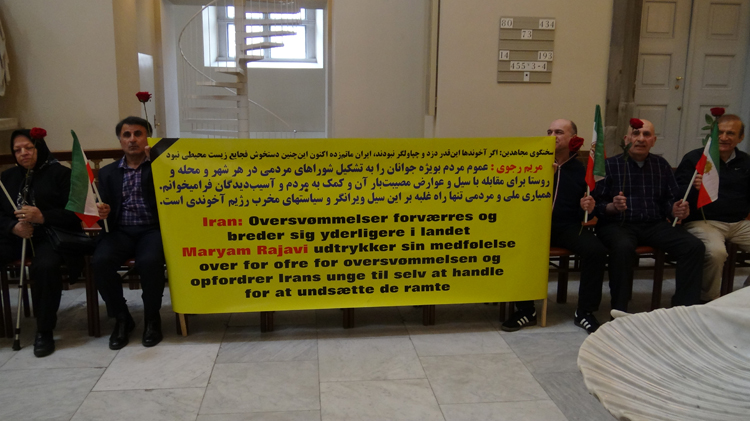 80 434
73
14 193
455³•3+4
سخنگوی مجاهدین: اگر آخوندها این‌قدر دزد و چپاولگر نبودند، ایران ماتم‌زده اکنون این‌چنین دستخوش فجایع زیست محیطی نبود
مریم رجوی: عموم مردم بویژه جوانان را به تشکیل شوراهای مردمی در هر شهر و محله و
روستا برای مقابله با سیل و عوارض مصیبت‌بار آن و کمک به مردم و آسیب‌دیدگان فرامیخوانم.
همیاری ملی و مردمی تنها راه غلبه بر این سیل ویرانگر و سیاستهای مخرب رژیم آخوندی است.
Iran: Oversvømmelser forværres og
breder sig yderligere i landet
Maryam Rajavi udtrykker sin medfølelse
over for ofre for oversvømmelsen og
opfordrer Irans unge til selv at handle
for at undsætte de ramte